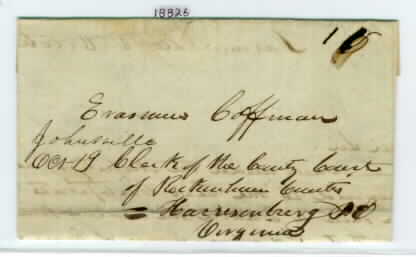 18826
10
Erasmus Coffman
Johnsville
Oct 19 Clerk of the County Court
of Rockingham County
Harrisonburg P.O
Virginia